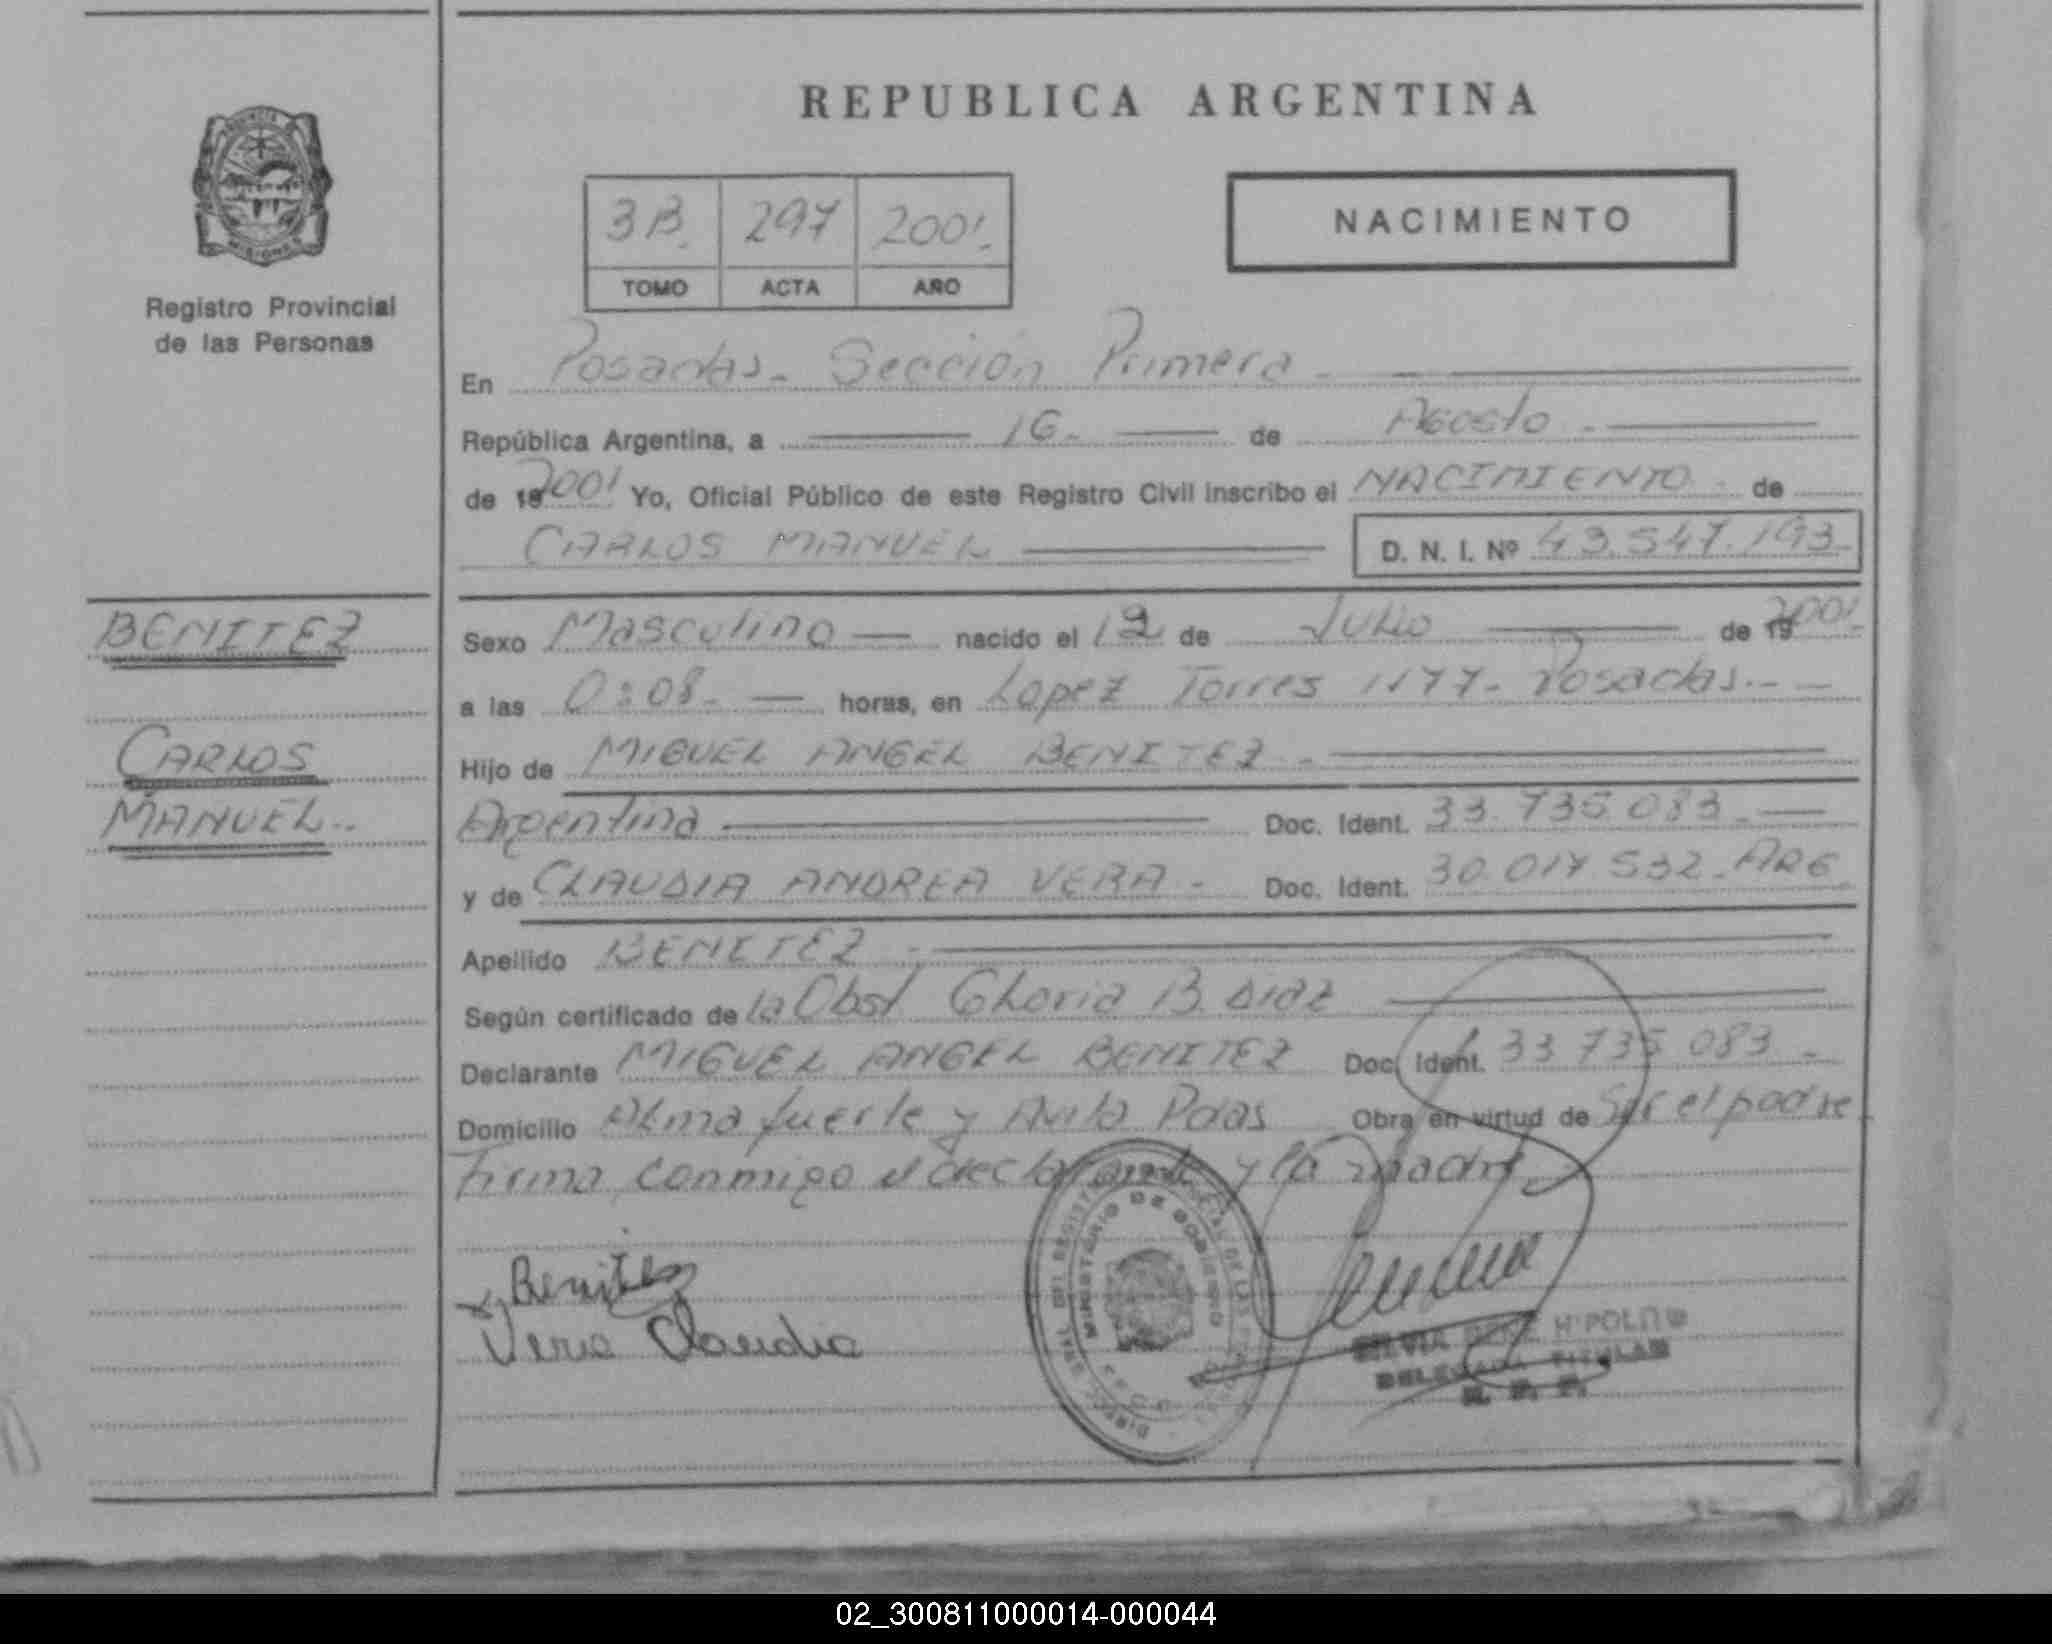 REPUBLICA ARGENTINA
PROVINCIA
MISIONES
Registro Provincial
de las Personas
3B. 297 2001.
TOMO ACTA AÑO
NACIMIENTO
En Posadas - Sección Primera -
República Argentina, a 16 - de Agosto -
de 19 2001 Yo, Oficial Público de este Registro Civil inscribo el NACIMIENTO - de
CARLOS MANUEL D. N. I. Nº 43.547.193-
BENITEZ
CARLOS
MANUEL..
Sexo Masculino nacido el 12 de Julio de 19 2001.
a las 0:08 - horas, en Lopez Torres 1177 - Posadas. -
Hijo de MIGUEL ANGEL BENITEZ -
Argentina Doc. Ident. 33.735.083 -
y de CLAUDIA ANDREA VERA - Doc. Ident. 30.017.532 - ARG
Apellido BENITEZ -
Según certificado de la Obst Gloria B. Diaz
Declarante MIGUEL ANGEL BENITEZ Doc. Ident. 33 735 083 -
Domicilio Almafuerte y Pdas Obra en virtud de Ser el padre
Firma conmigo el declarante y la madre.
Benitez
Vera Claudia
MINISTERIO DE GOBIERNO
SILVIA HIPOLITO
DELEGADA TITULAR
R. P. P.
02_300811000014-000044